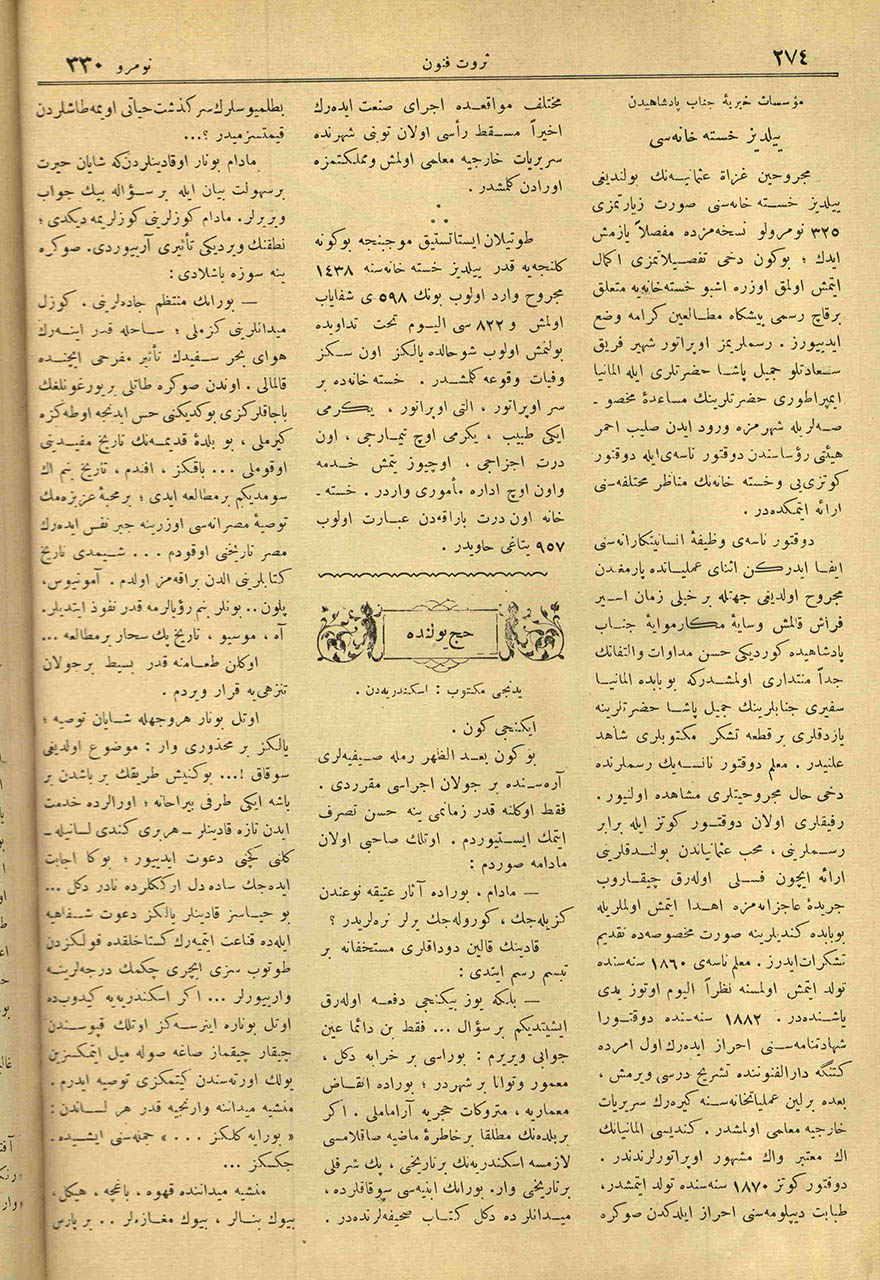 ٢٧٤
ثروت فنون
نومرو ٣٣٠
مؤسسات خيريهٔ جناب پادشاهيدن
ييلديز خسته خانه‌سى
مجروحين غزاة عثمانيه‌نك بولنديغى
ييلديز خسته خانه‌سنى صورت زيارتمزى
٣٢٥ نومرولو نسخه‌مزده مفصلاً يازمش
ايدك ؛ بوكون دخى تفصيلاتمزى اكمال
ايتمش اولمق اوزره اشبو خسته‌خانه‌يه متعلق
برقاچ رسمى پيشكاه مطالعين كرامه وضع
ايدييورز . رسملريمز اوپراتور شهير فريق
سعادتلو جميل پاشا حضرتلرى ايله المانيا
ايمپراطورى حضرتلرينك مساعدۀ مخصو ـ
صه‌لريله شهرمزه ورود ايدن صليب احمر
هيئتى رؤساسندن دوقتور ناسه‌ى ايله دوقتور
كوتزى‌يى وخسته خانه‌نك مناظر مختلفه‌سنى
ارائه ايتمكده‌در .
دوقتور ناسه‌ى وظيفهٔ انسانيتكارانه‌سنى
ايفا ايدركن اثناى عملياتده پارمغندن
مجروح اولديغى جهتله بر خيلى زمان اسير
فراش قالمش وسايهٔ مكارموايهٔ جناب
پادشاهيده كورديكى حسن مداوات والتفاتك
جداً منتدارى اولمشدركه بوبابده المانيا
سفيرى جنابلرينك جميل پاشا حضرتلرينه
يازدقلرى برقطعه تشكر مكتوبلرى شاهد
علنيدر . معلم دوقتور ناسه‌نك رسملرنده
دخى حال مجروحيتلرى مشاهده اولنيور .
رفيقلرى اولان دوقتور كوتز ايله برابر
رسملرينى ، محب عثمانياندن بولندقلرينى
ارائه ايچون فسلى اوله‌رق چيقاروب
جريدۀ عاجزانه‌مزه اهدا ايتمش اولملريله
بوبابده كنديلرينه صورت مخصوصه‌ده تقديم
تشكرات ايدرز . معلم ناسه‌ى ١٨٦٠ سنه‌سنده
تولد ايتمش اولمسنه نظراً اليوم اوتوز يدى
ياشنده‌در . ١٨٨٢ سنه‌سنده دوقتورا
شهادتنامه‌سنى احراز ايده‌رك اول امرده
دارالفنوننده تشريح درسى ويرمش ،
بعده برلين عملياتخانه‌سنه كيره‌رك سريريات
خارجيه معلمى اولمشدر . كنديسى المانيانك
اك معتبر واك مشهور اوپراتورلرندندر .
دوقتور كوتز ١٨٧٠ سنه‌سنده تولد ايتمشدر ،
طبابت ديپلومه‌سنى احراز ايلدكدن صوكره
مختلف مواقعده اجراى صنعت ايده‌رك
اخيراً مسقط رأسى اولان شهرنده
سريريات خارجيه معلمى اولمش ومملكتمزه
اورادن كلمشدر .
طوتيلان ايستاتستيق موجبنجه بوكونه
كلنجه‌يه قدر ييلديز خسته خانه‌سنه ١٤٣٨
مجروح وارد اولوب بونك ٥٩٨ ى شفاياب
اولمش و ٨٢٢ سى اليوم تحت تداويده
بولنمش اولوب شو حالده يالكز اون سكز
وفيات وقوعه كلمشدر . خسته خانه‌ده بر
سر اوپراتور ، التى اوپراتور ، يكرمى
ايكى طبيب ، يكرمى اوچ تيمارجى ، اون
درت اجزاجى ، اوچيوز يتمش خدمه
واون اوچ اداره مأمورى واردر . خسته ـ
خانه اون درت باراقه‌دن عبارت اولوب
٩٥٧ يتاغى حاويدر .
حج يولنده
يدنجى مكتوب : اسكندريه‌دن .
ايكنجى كون .
بوكون بعد الظهر رمله صيفيه‌لرى
آره‌سنده بر جولان اجراسى مقرردى .
فقط اوكلنه قدر زمانمى ينه حسن تصرف
ايتمك ايستيوردم . اوتلك صاحبى اولان
مادامه صوردم :
— مادام ، بوراده آثار عتيقه نوعندن
كزيله‌جك ، كوروله‌جك يرلر نره‌لريدر ؟
قادينك قالين دوداقلرى مستخفانه بر
تبسم رسم ايتدى :
— بلكه يوز بيكنجى دفعه اوله‌رق
ايشيتديكم بر سؤال ... فقط بن دائما عين
جوابى ويررم : بوراسى بر خرابه دكل ،
معمور وتوانا بر شهردر ؛ بوراده انقاض
معماريه ، متروكات حجريه آراماملى . اكر
بر بلده‌نك مطلقا بر خاطرۀ ماضيه صاقلامسى
لازمسه اسكندريه‌نك برتاريخى ، پك شرفلى
برتاريخى وار. بورانك ابنيه‌سى سوقاقلرده ،
ميدانلر ده دكل كتاب صحيفه‌لرنده‌در .
بطلميوسلرك سركذشت حياتى اويمه طاشلردن
قيمتسزميدر ؟...
مادام بونار اوقادينلردن‌كه شايان حيرت
برسهولت بيان ايله بر سؤاله بيك جواب
ويريرلر. مادام كوزلرينى كوزلريمه ديكدى ؛
نطقنك ويرديكى تأثيرى آرييوردى. صوكره
ينه سوزه باشلادى :
— بورانك منتظم جاده‌لرينى . كوزل
ميدانلرينى كزملى ؛ ساحله قدر اينه‌رك
هواى بحر سفيدك تأثير مفرحى ايچنده
قالمالى . اوندن صوكره طاتلى بريورغونلغك
باجاقلركزى بوكديكنى حس ايدنجه اوطه‌كزه
كيرملى ، بو بلدۀ قديمه‌نك تاريخ مفيدينى
اوقوملى ... باقكز ، افندم ، تاريخ بنم اك
سومديكم برمطالعه ايدى ؛ برمحبۀ عزيزه‌مك
توصيۀ مصرانه‌سى اوزرينه جبر نفس ايده‌رك
مصر تاريخنى اوقودم ... شيمدى تاريخ
كتابلرينى الدن براقه‌مز اولدم . آمونيوس،
پلون.. بونلر بنم رؤيالرمه قدر نفوذ ايتديلر.
آه ، موسيو ، تاريخ پك سحار برمطالعه ...
اوكلن طعامنه قدر بسيط برجولان
تنزهى‌يه قرار ويردم .
اوتل بونار هروجهله شايان توصيه ؛
يالكز بر محذورى وار : موضوع اولديغى
سوقاق !... بوكنيش طريقك بر باشدن بر
باشه ايكى طرفى بيراخانه ؛ اورالرده خدمت
ايدن تازه قادينلر ـ هربرى كندى لسانيله ـ
كلنى كچنى دعوت ايدييور ؛ بوكا اجابت
ايده‌جك ساده دل اركككلرده نادر دكل ...
بو حياسز قادينلر يالكز دعوت شفاهيه
ايله‌ده قناعت ايتميه‌رك كستاخلقده قولكزدن
طوتوب سزى ايچرى چكمك درجه‌لرينه
وارييورلر ... اكر اسكندريه‌يه كيدوب‌ده
اوتل بوناره اينرسه‌كز اوتلك قپوسندن
چيقار چيقماز صاغه صوله ميل ايتمكسزين
يولك اورته‌سندن كيتمكزى توصيه ايدرم .
منشيه ميداننه وارنجيه قدر هر لساندن :
« بورايه كلكز ... » جمله‌سنى ايشيده ـ
جكسكز ...
منشيه ميداننده قهوه ، باغچه ، هيكل ،
بيوك بنالر ، بيوك مغازه‌لر .. بر پارس